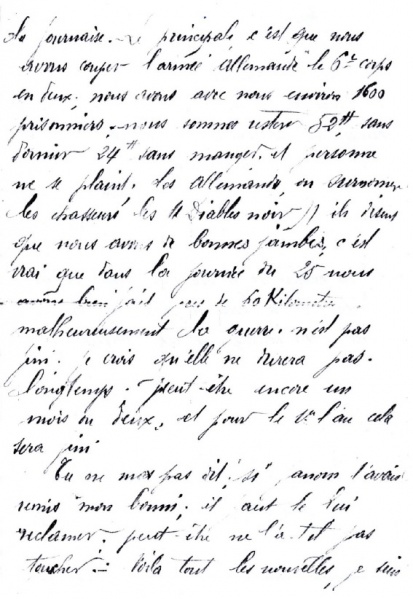 la fournaise. Le principale c'est que nous
avons couper l'armée allemande le 6e corps
en deux, nous avons avec nous environ 1600
prisonniers, nous sommes rester 52H sans
dormir 24H sans manger, et personne
ne se plaint. les allemands on surnomer
les chasseurs les "Diables noir" ils disent
que nous avons de bonnes jambes, c'est
vrai que dans la journée du 25 nous
avons bien fait près de 60 Kilomètres
malheureusement la guerre n'est pas
fini. je crois qu'elle ne durera pas
longtemps - peut-être encore un
mois ou deux, et pour le 1er l'an cela
sera fini
Tu ne max pas dit, si, l'avais
remis mon bonni, il faut le lui
reclamer, peut-être ne l'a t'il pas
toucher - Voila tout les nouvelles, je suis